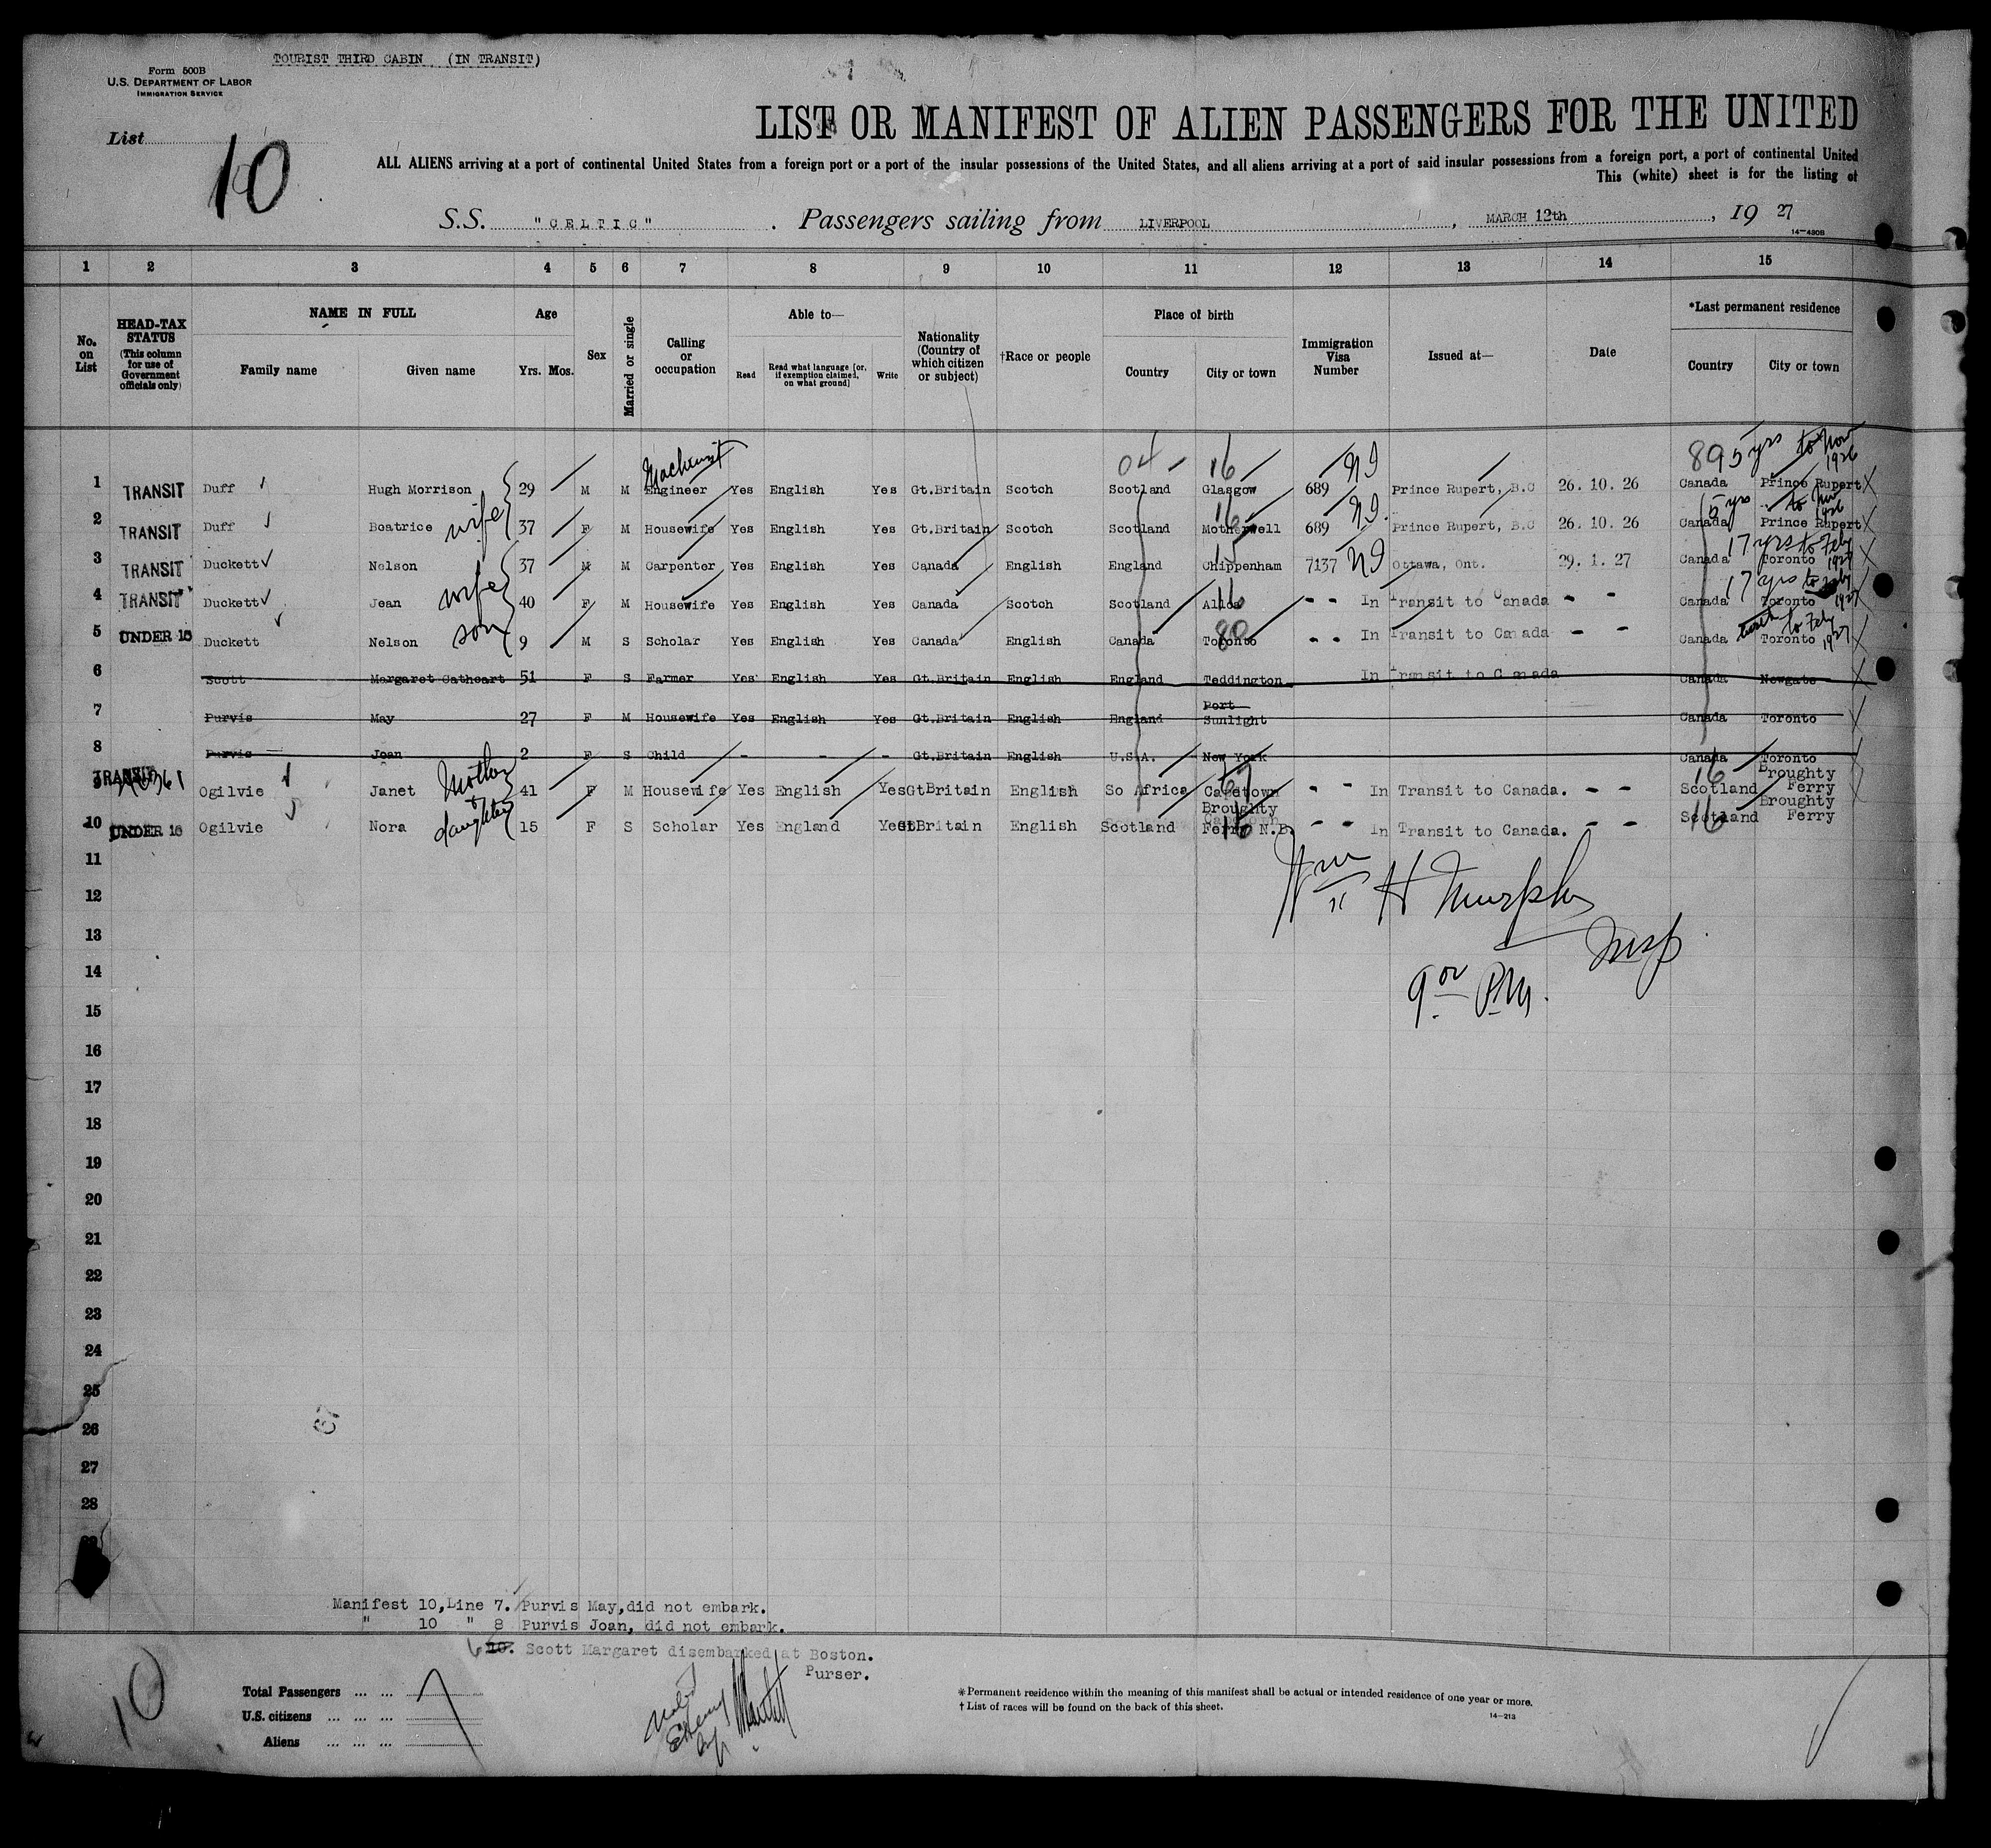 TOURIST THIRD CABIN. (IN TRANSIT)
Form 500B
U.S. DEPARTMENT OF LABOR
IMMIGRATION SERVICE
List
10
LIST OR MANIFEST OF ALIEN PASSENGERS FOR THE UNITED
ALL ALIENS arriving at a port of continental United States from a foreign port or a port of the insular possessions of the United States, and all aliens arriving at a port of said insular possessions from a foreign port, a port of continental United
This (white) sheet is for the listing of
S.S. "CELTIC". Passengers sailing from LIVERPOOL, MARCH 12th, 19 27
14-430B
1 2 3 4 5 6 7 8 9 10 11 12 13 14 15
No. on List
HEAD-TAX STATUS (This column for use of Government officials only)
NAME IN FULL
Family name Given name
Age
Yrs. Mos.
Sex
Married or single
Calling or occupation
Able to—
Read
Read what language [or, if exemption claimed, on what ground]
Write
Nationality (Country of which citizen or subject)
†Race or people
Place of birth
Country City or town
Immigration Visa Number
Issued at—
Date
*Last permanent residence
Country City or town
Machinist 04 - 16 NI 89 5 yrs to Nov 1926
1 TRANSIT Duff Hugh Morrison 29 M M Engineer Yes English Yes Gt.Britain Scotch Scotland Glasgow 689 Prince Rupert, B.C 26.10.26 Canada Prince Rupert X
wife 16 NI 5 yrs to Nov 1926
2 TRANSIT Duff Beatrice 37 F M Housewife Yes English Yes Gt.Britain Scotch Scotland Motherwell 689 Prince Rupert, B.C 26.10.26 Canada Prince Rupert X
17 yrs to Feby 1927
3 TRANSIT Duckett Nelson 37 M M Carpenter Yes English Yes Canada English England Chippenham 7137 NI Ottawa, Ont. 29.1.27 Canada Toronto X
wife 17 yrs to Feby 1927
4 TRANSIT Duckett Jean 40 F M Housewife Yes English Yes Canada Scotch Scotland Alloa 16 - - In Transit to Canada - - Canada Toronto X
son 80 to Feby 1927
5 UNDER 16 Duckett Nelson 9 M S Scholar Yes English Yes Canada English Canada Toronto - - In Transit to Canada - - Canada Toronto X
6 Scott Margaret Cathcart 51 F S Farmer Yes English Yes Gt.Britain English England Teddington In Transit to Canada Canada Newgate X
7 Purvis May 27 F M Housewife Yes English Yes Gt.Britain English England Port Sunlight Canada Toronto X
8 Purvis Joan 2 F S Child - - - Gt.Britain English U.S.A. New York Canada Toronto X
Mother + daughter
9 TRANSIT Ogilvie Janet 41 F M Housewife Yes English Yes GtBritain English So Africa Capetown 67 - - In Transit to Canada. - - 16 Scotland Broughty Ferry
10 UNDER 16 Ogilvie Nora 15 F S Scholar Yes England Yes GtBritain English Scotland Broughty Ferry N.B. 16 - - In Transit to Canada. - - 16 Scotland Broughty Ferry
11
Wm H Murphy
12
13
Insp
14
9 00 P.M.
15
16
17
18
19
20
21
22
23
24
25
26
27
28
Manifest 10, Line 7. Purvis May, did not embark.
" 10 " 8 Purvis Joan, did not embark.
6 10. Scott Margaret disembarked at Boston.
Purser.
10
Total Passengers ... ... 7
U.S. citizens ... ... ...
Aliens ... ... ...
*Permanent residence within the meaning of this manifest shall be actual or intended residence of one year or more.
† List of races will be found on the back of this sheet.
14-213